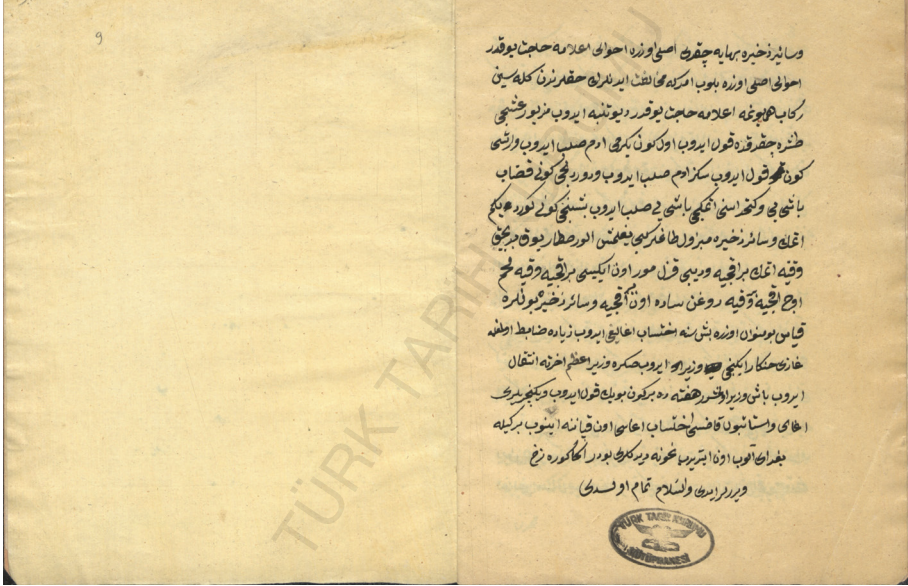 و سائر ذخیره بهایه چقدی اصلی اوزره احوالی اعلامه حاجت یوقدر
احوالی اصلی اوزره بلوب امر که مخالطت ایدنلرک حقلرندن کله سین
رکاب همایونمه اعلامه حاجت یوقدر دیو تنبیه ایدوب مزبور عشجی
طشره چقدقده قول ایدوب اول کون یکرمی ادم صلب ایدوب وارتسی
کون قول ایدوب سکز ادم صلب ایدوب و دوردنجی کونی قصاب
باشی یی و کتخداسنی اتمکجی باشی یی صلب ایدوب بشنجی کونی کوردیکم
اتمک و سائر ذخیره مبزول طاغلر کبی یغلمش الور صطار یوق بر بچق
وقیه اتمک بر اقچیه و دیبی قزل مور اون ایکیسی بر اقچیه وقیه لحم
اوچ اقچیه وقیه روغن ساده اون اقچیه و سائر ذخیره بونلره
قیاس بو منوال اوزره بش سنه احتساب اغالیغی ایدوب زیاده ضابط اولمغله
غازی خنکار ایکنجی وزیر ایدوب صکره وزیر اعظم اخرته انتقال
ایدوب باش وزیر اولدی هر هفته ده بر کون مو یک قول ایدوب و یکیچریلری
اغای و استانبول قاضسی احتساب اغاسی اون قپاننه اینوب بر کیله
بغدای الوب اون ایتدیروب نمونه دیرلر بودر اکا کوره نرخ
ویررلر ایدی والسلام تمام اولدی
TÜRK TARİH KURUMU
KÜTÜPHANESİ
TÜRK TARİH KURUMU
9